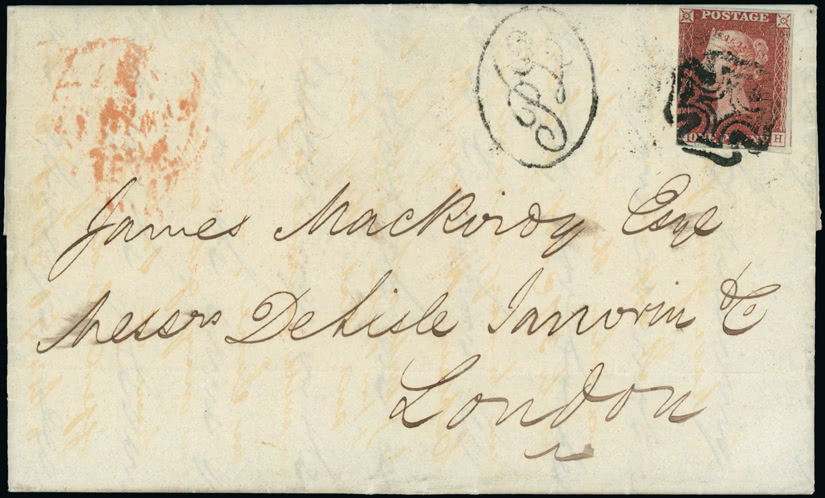 POSTAGE
ONE PENNY
H
James Mackirdy Esqe
Messrs DeLisle Janvrin & C
London